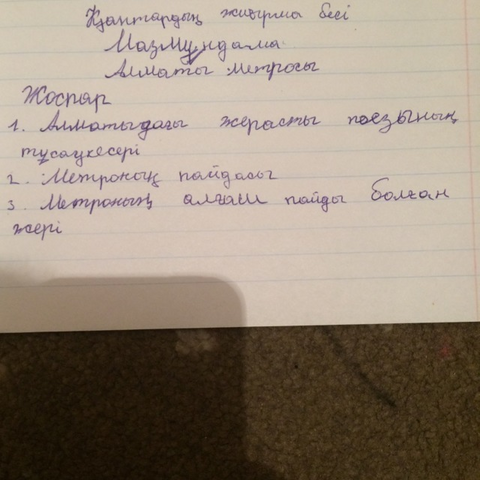 Қаңтардың жиырма бесі
Мазмұндама
Алматы метросы
Жоспар
1. Алматыдағы жерасты поезының
тұсаукесері
2. Метроның пайдасы
3. Метроның алғаш пайды болған
жері